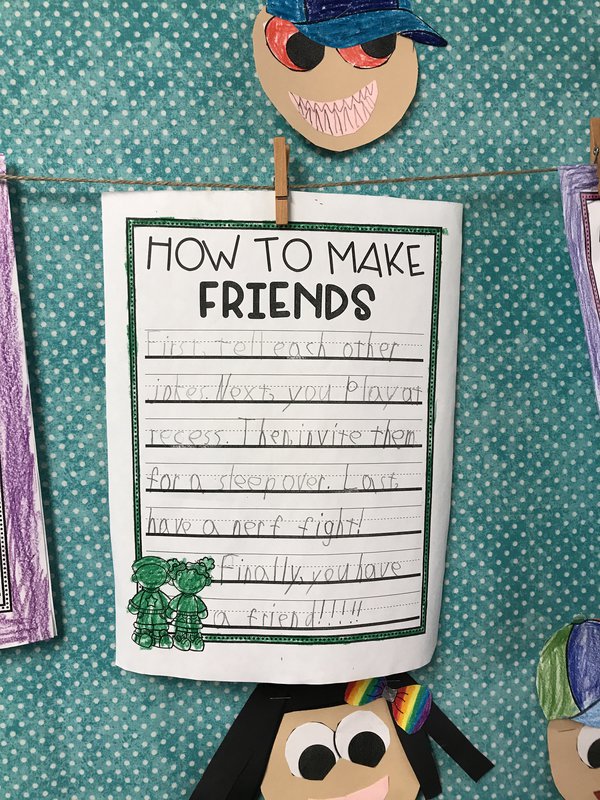 HOW TO MAKE
FRIENDS
First, tell each other
jokes. Next, you Play at
recess. Then, invite them
for a sleep over. Last,
have a nerf fight!
Finally, you have
a friend!!!!!